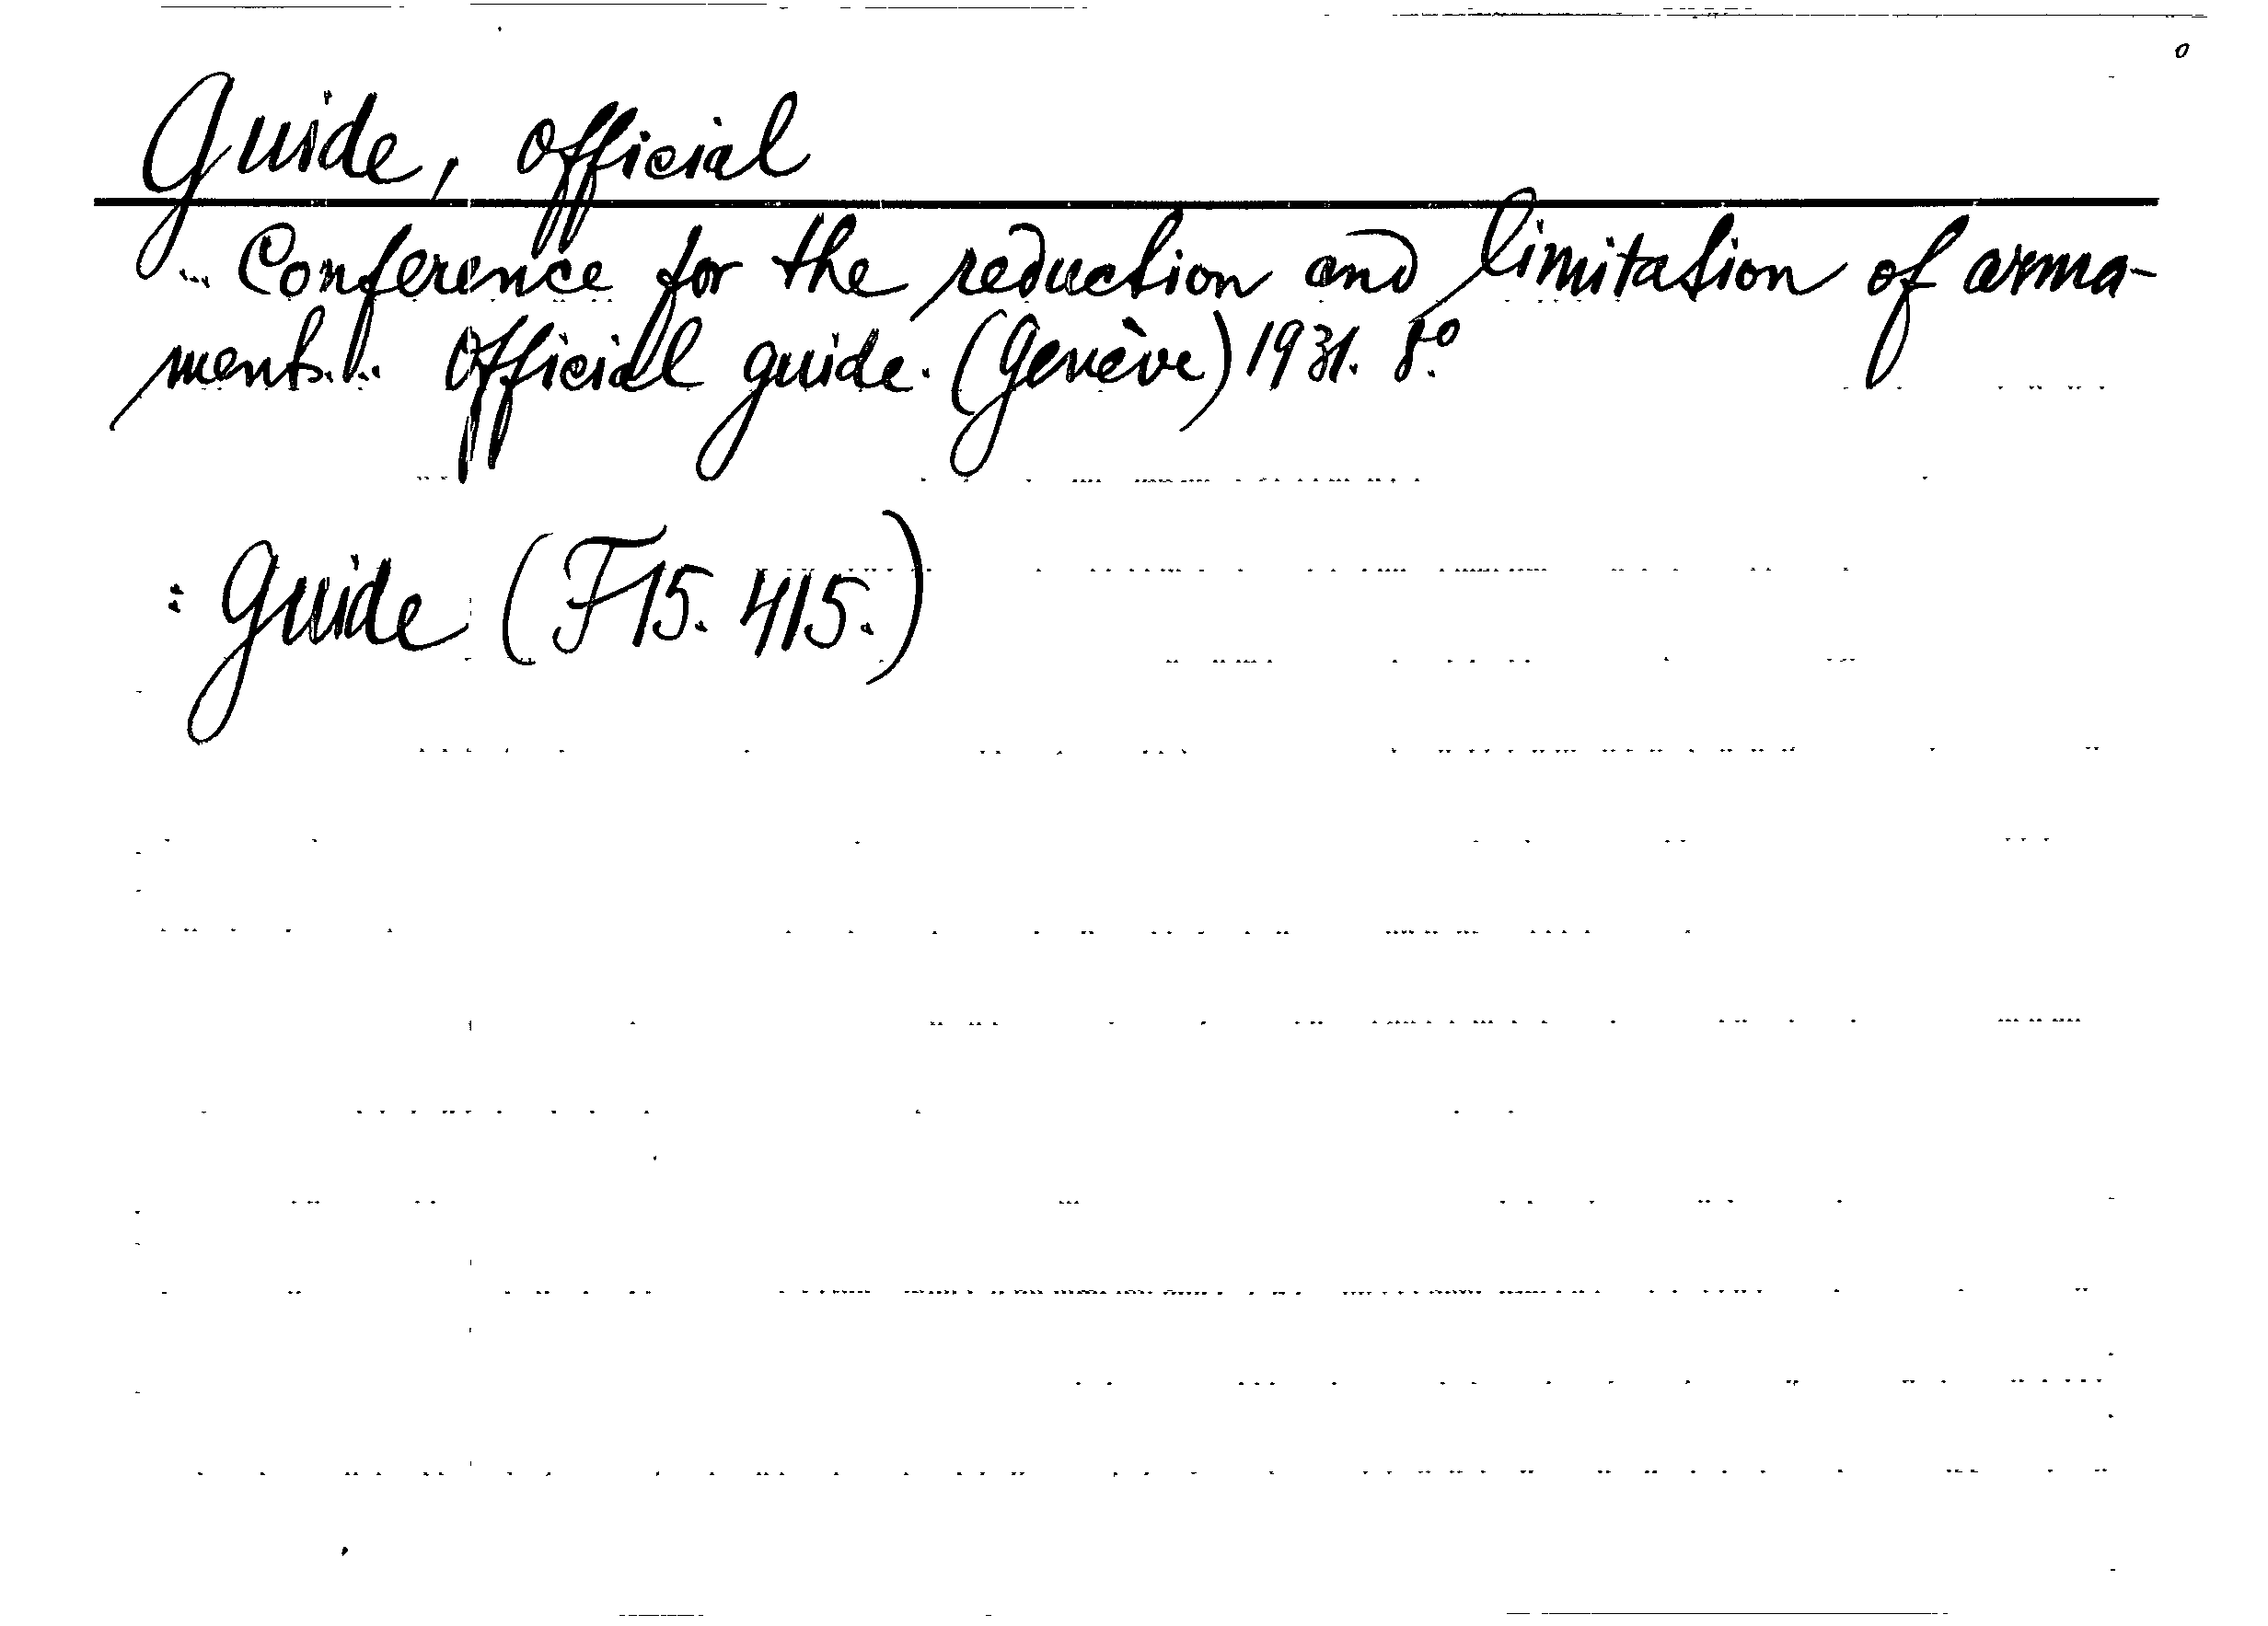 Guide, official
... Conference for the reduction and limitation of arma-
ments... Official guide. (Genève) 1931. 8:o
: Guide (F15. 415.)